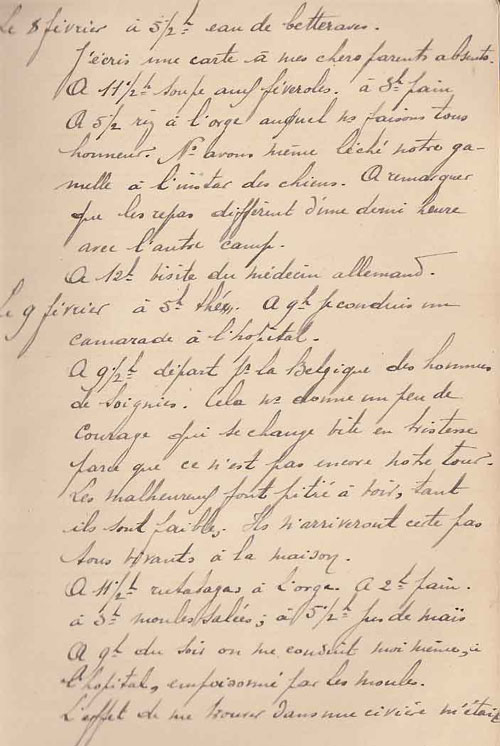 Le 8 février à 5 1/2 h eau de betteraves.
J'écris une carte à mes chers parents absents.
A 11 1/2 h soupe aux féveroles. à 3h pain
A 5 1/2 riz à l'orge auquel ns faisons tous
honneur. Ns avons même léché notre ga-
melle à l'instar des chiens. A remarquer
que les repas diffèrent d'une demi heure
avec l'autre camp.
A 12h visite du médecin allemand.
Le 9 février à 5h thé. A 9h je conduis un
camarade à l'hôpital.
A 9 1/2 h départ pr la Belgique des hommes
de Soignies. Cela ns donne un peu de
courage qui se change vite en tristesse
parce que ce n'est pas encore notre tour.
Les malheureux font pitié à voir, tant
ils sont faibles. Ils n'arriveront certe pas
tous vivants à la maison.
A 11 1/2 h rutabagas à l'orge. A 2h pain.
à 3h moules salées, à 5 1/2 h pus de maïs
A 9h du soir on me conduit moi même, à
l'hopital, empoisonné par les moules.
L'effet de me trouver dans une civière m'était